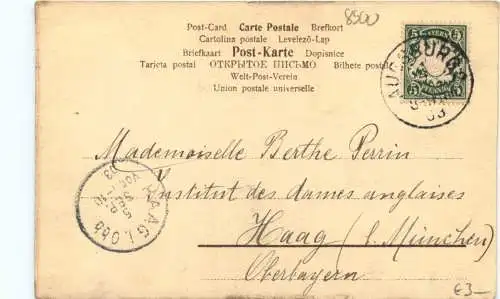 8500
Post-Card Carte Postale Brefkort
Cartolina postale Levelező-Lap
Briefkaart Post-Karte Dopisnice
Tarjeta postal ОТКРЫТОЕ ПИСЬМО Bilhete postal
Welt-Post-Verein
Union postale universelle
5 BAYERN 5
5 PFENNIG 5
AUGSBURG
03
Mademoiselle Berthe Perrin
Institut des dames anglaises
Haag (b. München)
Oberbayern
HAAG I. Obb
03
€3–